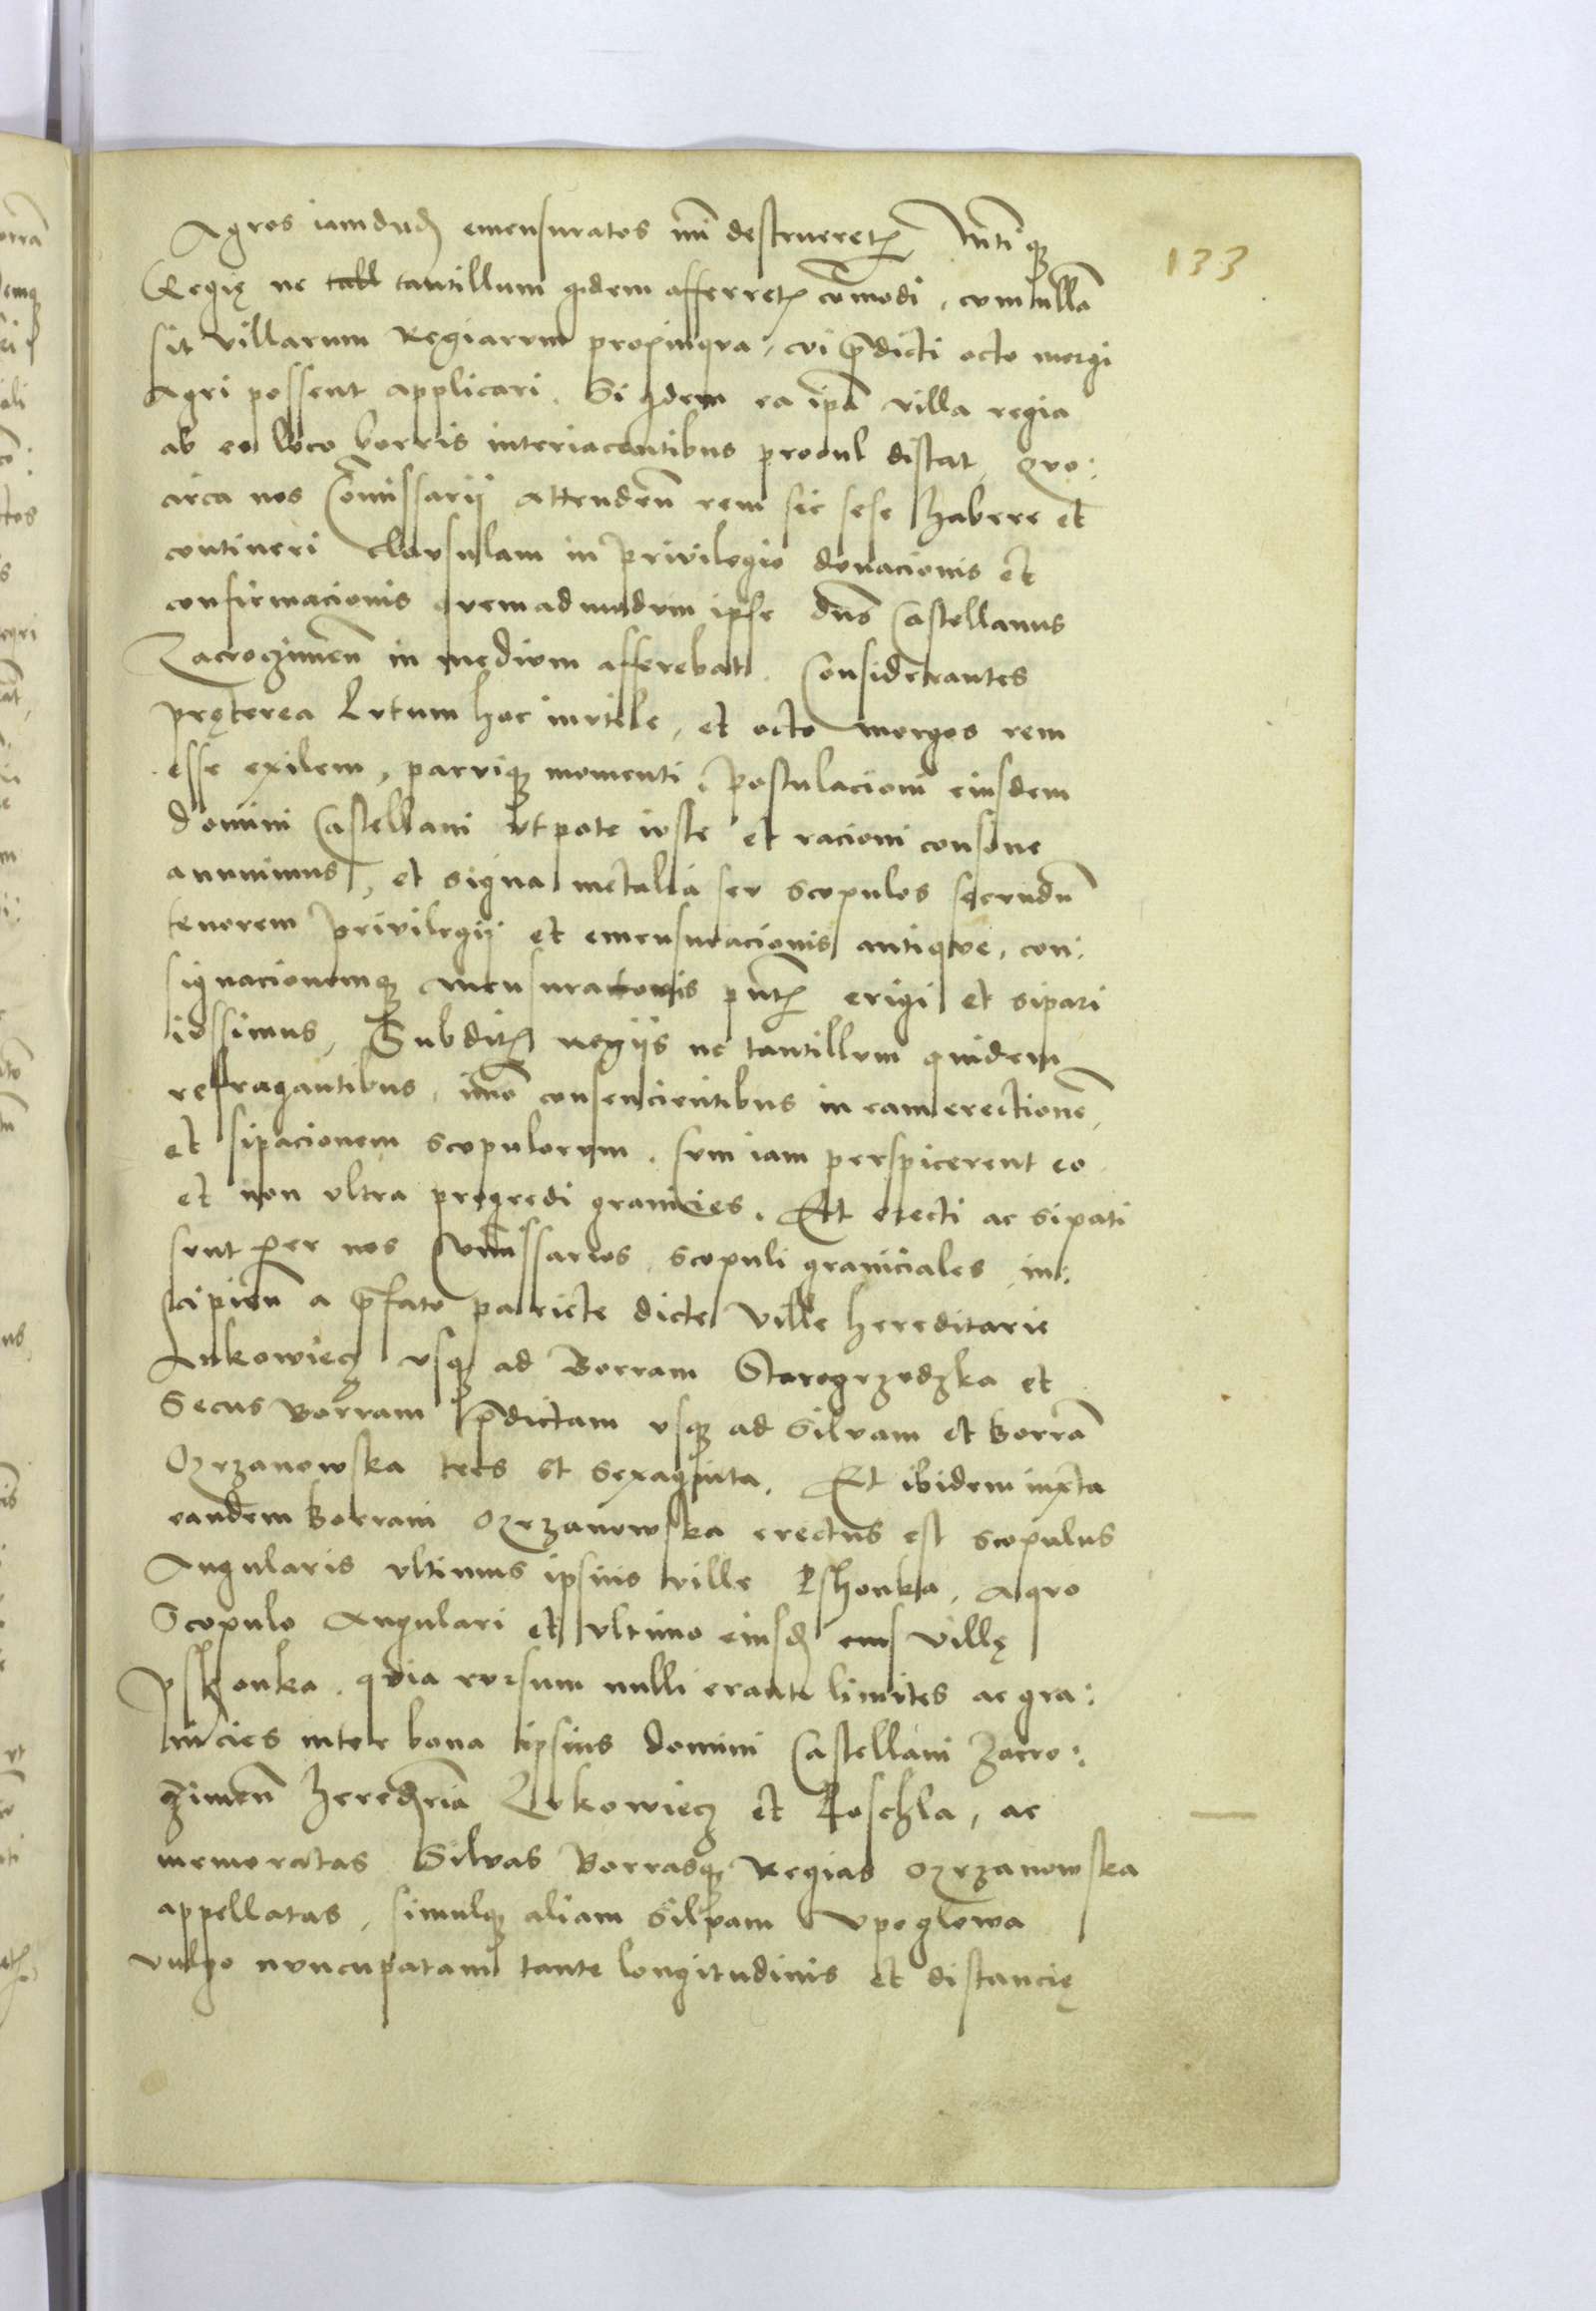 133
Agros iamdud emensuratos nisi destrueretr Mtique
Regię ne tantillum qidem afferretr comodi, cum nulla
sit villarum Regiarum propinqva, cvi predicti octo morgi
Agri possent applicari. Siqdem ea ipa villa regia
ab eo loco borris interiacentibus procul distat, Qvo:
circa nos Comissarij Attenden rem sic sese habere et
contineri clavsulam in privilegio donacionis et
confirmacionis qvemadmodvm ipse dns Castellanus
Zacrocimen in medivm afferebat. Considerantes
pręterea Lvtum hoc invtile, et octo morgos rem
esse exilem, parvique momenti, Postulacioni eiusdem
domini Castellani vtpote ivste et racioni consone
annuimus, et signa metalia sev scopulos secundu
tenorem Privilegij et emensuracionis antiqve, con:
signacionemque mensuratoris pntr erigi et sipari
ivssimus, Subditr regijs ne tantillvm quidem
refragantibus, imo consencientibus in eam erectione,
et sipacionem scopulorvm, cvm iam perspicerent eo
et non vltra progredi granicies. Et erecti ac sipati
svnt per nos Comissarios scopuli graniciales in:
cipien a prefato pariete dicte ville hereditarie
Lukowiecz vsque ad Borram Starogrzodzka et
Secus Borram predictam vsque ad Silvam et borra
Ozrzanowska tres et sexaginta. Et ibidem iuxta
eandem borram Ozrzanowska erectus est scopulus
Angularis vltimus ipsius ville Pshonka, Aqvo
Scopulo Angulari et vltimo eiusd eius villę
Pshonka, qvia rvrsum nulli erant limites ac gra:
nicies inter bona ipsius domini Castellani Zacro:
czimen heredria Lvkowiecz et Roschla, ac
memoratas Silvas Borrasque Regias Ozrzanowska
appellatas, simulque aliam Silvam Vpoglowa
vulgo nvncupatam tante longitudinis et distancię